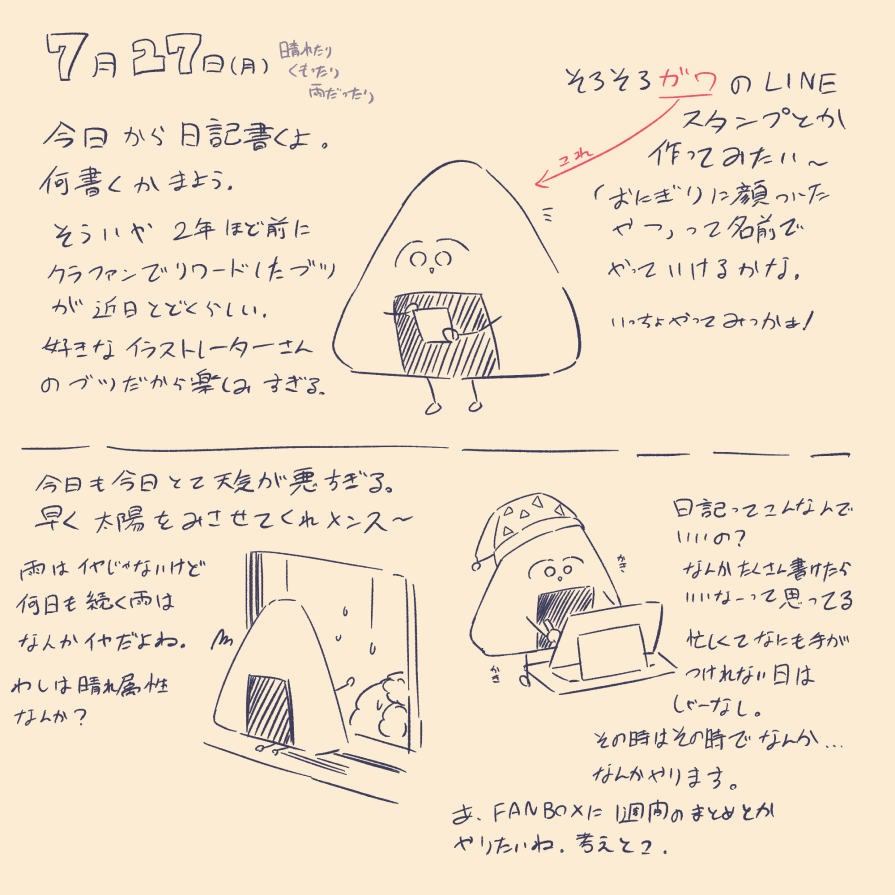 7月27日(月)
晴れたり
くもったり
雨だったり
今日から日記書くよ。
何書くかまよう。
そういや 2年ほど前に
クラファンでリワードしたブツ
が近日とどくらしい。
好きなイラストレーターさん
のブツだから楽しみすぎる。
そろそろガワのLINE
スタンプとか
作ってみたい〜
これ
「おにぎりに顔ついた
やつ」って名前で
やっていけるかな。
いっちょやってみっかぁ!
今日も今日とて天気が悪すぎる。
早く太陽をみさせてくれメンス〜
雨はイヤじゃないけど
何日も続く雨は
なんかイヤだよね。
わしは晴れ属性
なんか?
かき
かき
日記ってこんなんで
いいの?
なんかたくさん書けたら
いいなーって思ってる
忙しくてなにも手が
つけれない日は
しゃーなし。
その時はその時でなんか...
なんかやります。
あ、FANBOXに1週間のまとめとか
やりたいね。考えとこ。